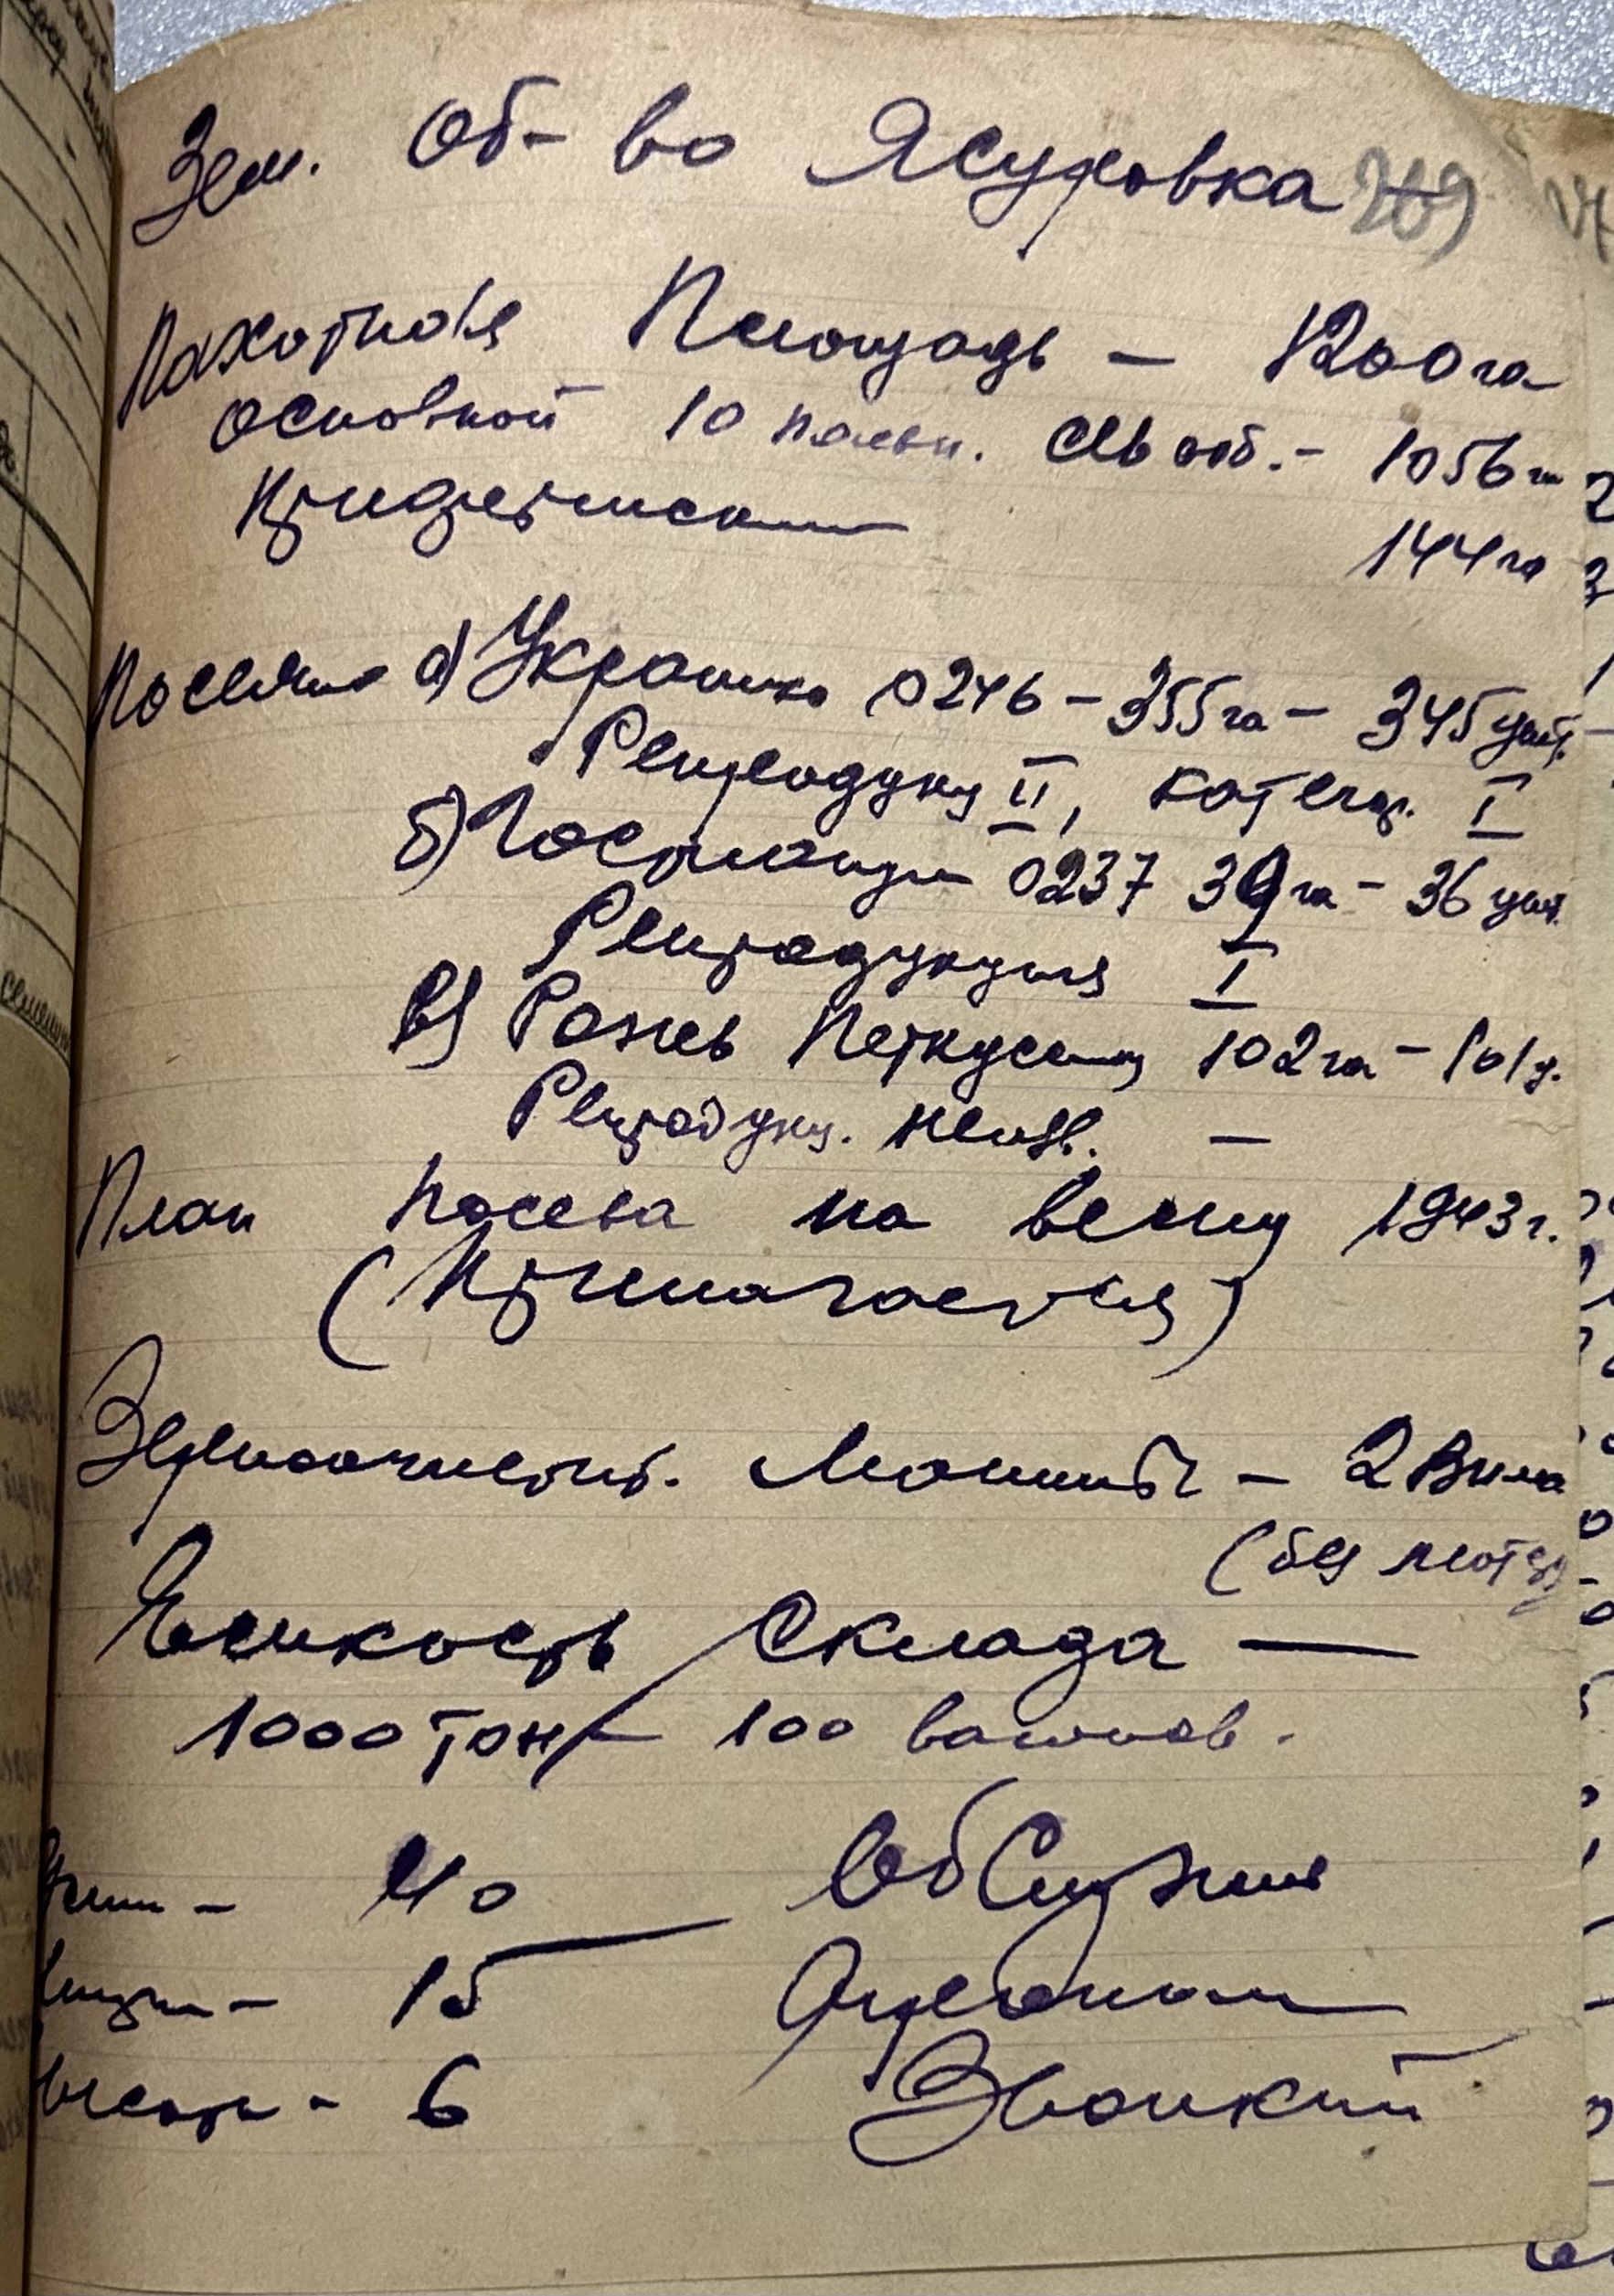 Зем. Об-во Ясуровка 209
Пахотная Площадь - 1200 га
основной 10 польн. Сѣвооб. - 1056 га
Прифермский 144 га
Посеяно а) Украинка 0246 - 355 га - 345 цнт.
Репродукц II, катег. I
б) Гостианум 0237 39 га - 36 цнт.
Репродукция I
в) Рожь Петкусск 102 га - 101 ц.
Репродукц. неизв. -
План посева на весну 1943 г.
(Прилагается)
Зерноочистит. Машины - 2 Вима
(без мотор
Емкость Склада -
1000 тон - 100 вагонов.
- 40
- 15
- 6
Звонкий